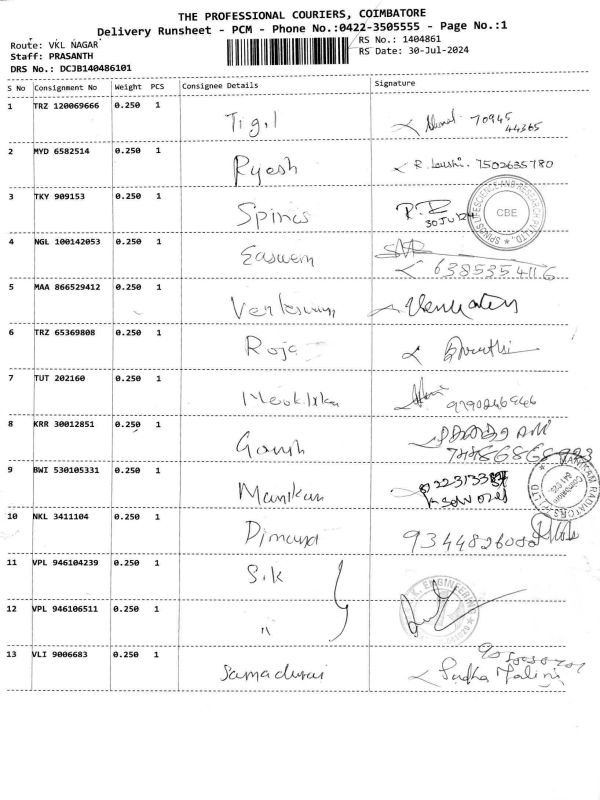 THE PROFESSIONAL COURIERS, COIMBATORE
Delivery Runsheet - PCM - Phone No.:0422-3505555 - Page No.:1
Route: VKL NAGAR
RS No.: 1404861
Staff: PRASANTH
RS Date: 30-Jul-2024
DRS No.: DCJB140486101
S No Consignment No Weight PCS Consignee Details Signature
1 TRZ 120069666 0.250 1 Tigil 70945
44365
2 MYD 6582514 0.250 1 Ryesh R. 7502635780
3 TKY 909153 0.250 1 Spincs
30 JUL 24
CBE
4 NGL 100142053 0.250 1 Easwern
6385354116
5 MAA 866529412 0.250 1
6 TRZ 65369808 0.250 1 Roja
7 TUT 202160 0.250 1
9790246946
8 KRR 30012851 0.250 1
9 BWI 530105331 0.250 1 Manikan
10 NKL 3411104 0.250 1
11 VPL 946104239 0.250 1 S.K
K. ENGINEERING
12 VPL 946106511 0.250 1 "
13 VLI 9006683 0.250 1 Samadurai
Sudha Malini